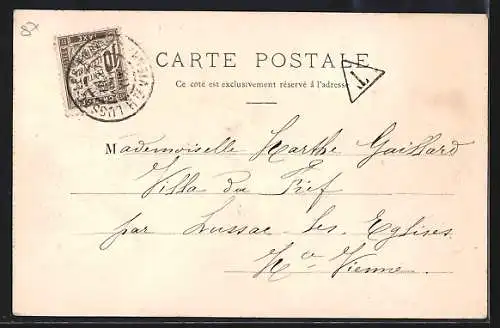 CARTE POSTALE
Ce coté est exclusivement réservé à l'adresse
T
Mademoiselle Marthe Gaillard
Villa du Fief
par Lussac-les-Eglises
Hte Vienne